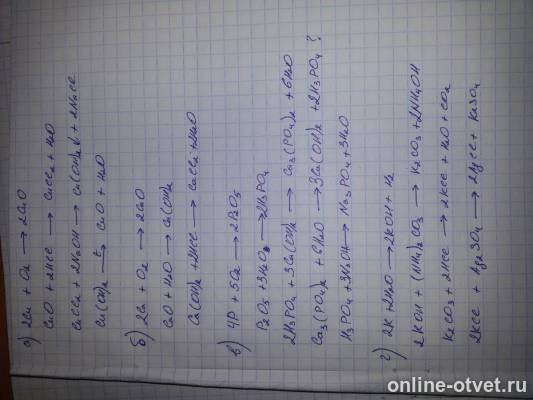 а) 2Cu + O₂ → 2CuO
CuO + 2HCl → CuCl₂ + H₂O
CuCl₂ + 2NaOH → Cu(OH)₂↓ + 2NaCl
Cu(OH)₂ →t CuO + H₂O
б) 2Ca + O₂ → 2CaO
CaO + H₂O → Ca(OH)₂
Ca(OH)₂ + 2HCl → CaCl₂ + 2H₂O
в) 4P + 5O₂ → 2P₂O₅
P₂O₅ + 3H₂O → 2H₃PO₄
2H₃PO₄ + 3Ca(OH)₂ → Ca₃(PO₄)₂ + 6H₂O
Ca₃(PO₄)₂ + 6H₂O → 3Ca(OH)₂ + 2H₃PO₄ ?
H₃PO₄ + 3NaOH → Na₃PO₄ + 3H₂O
г) 2K + 2H₂O → 2KOH + H₂
2KOH + (NH₄)₂CO₃ → K₂CO₃ + 2NH₄OH
K₂CO₃ + 2HCl → 2KCl + H₂O + CO₂
2KCl + Ag₂SO₄ → 2AgCl + K₂SO₄
online-otvet.ru